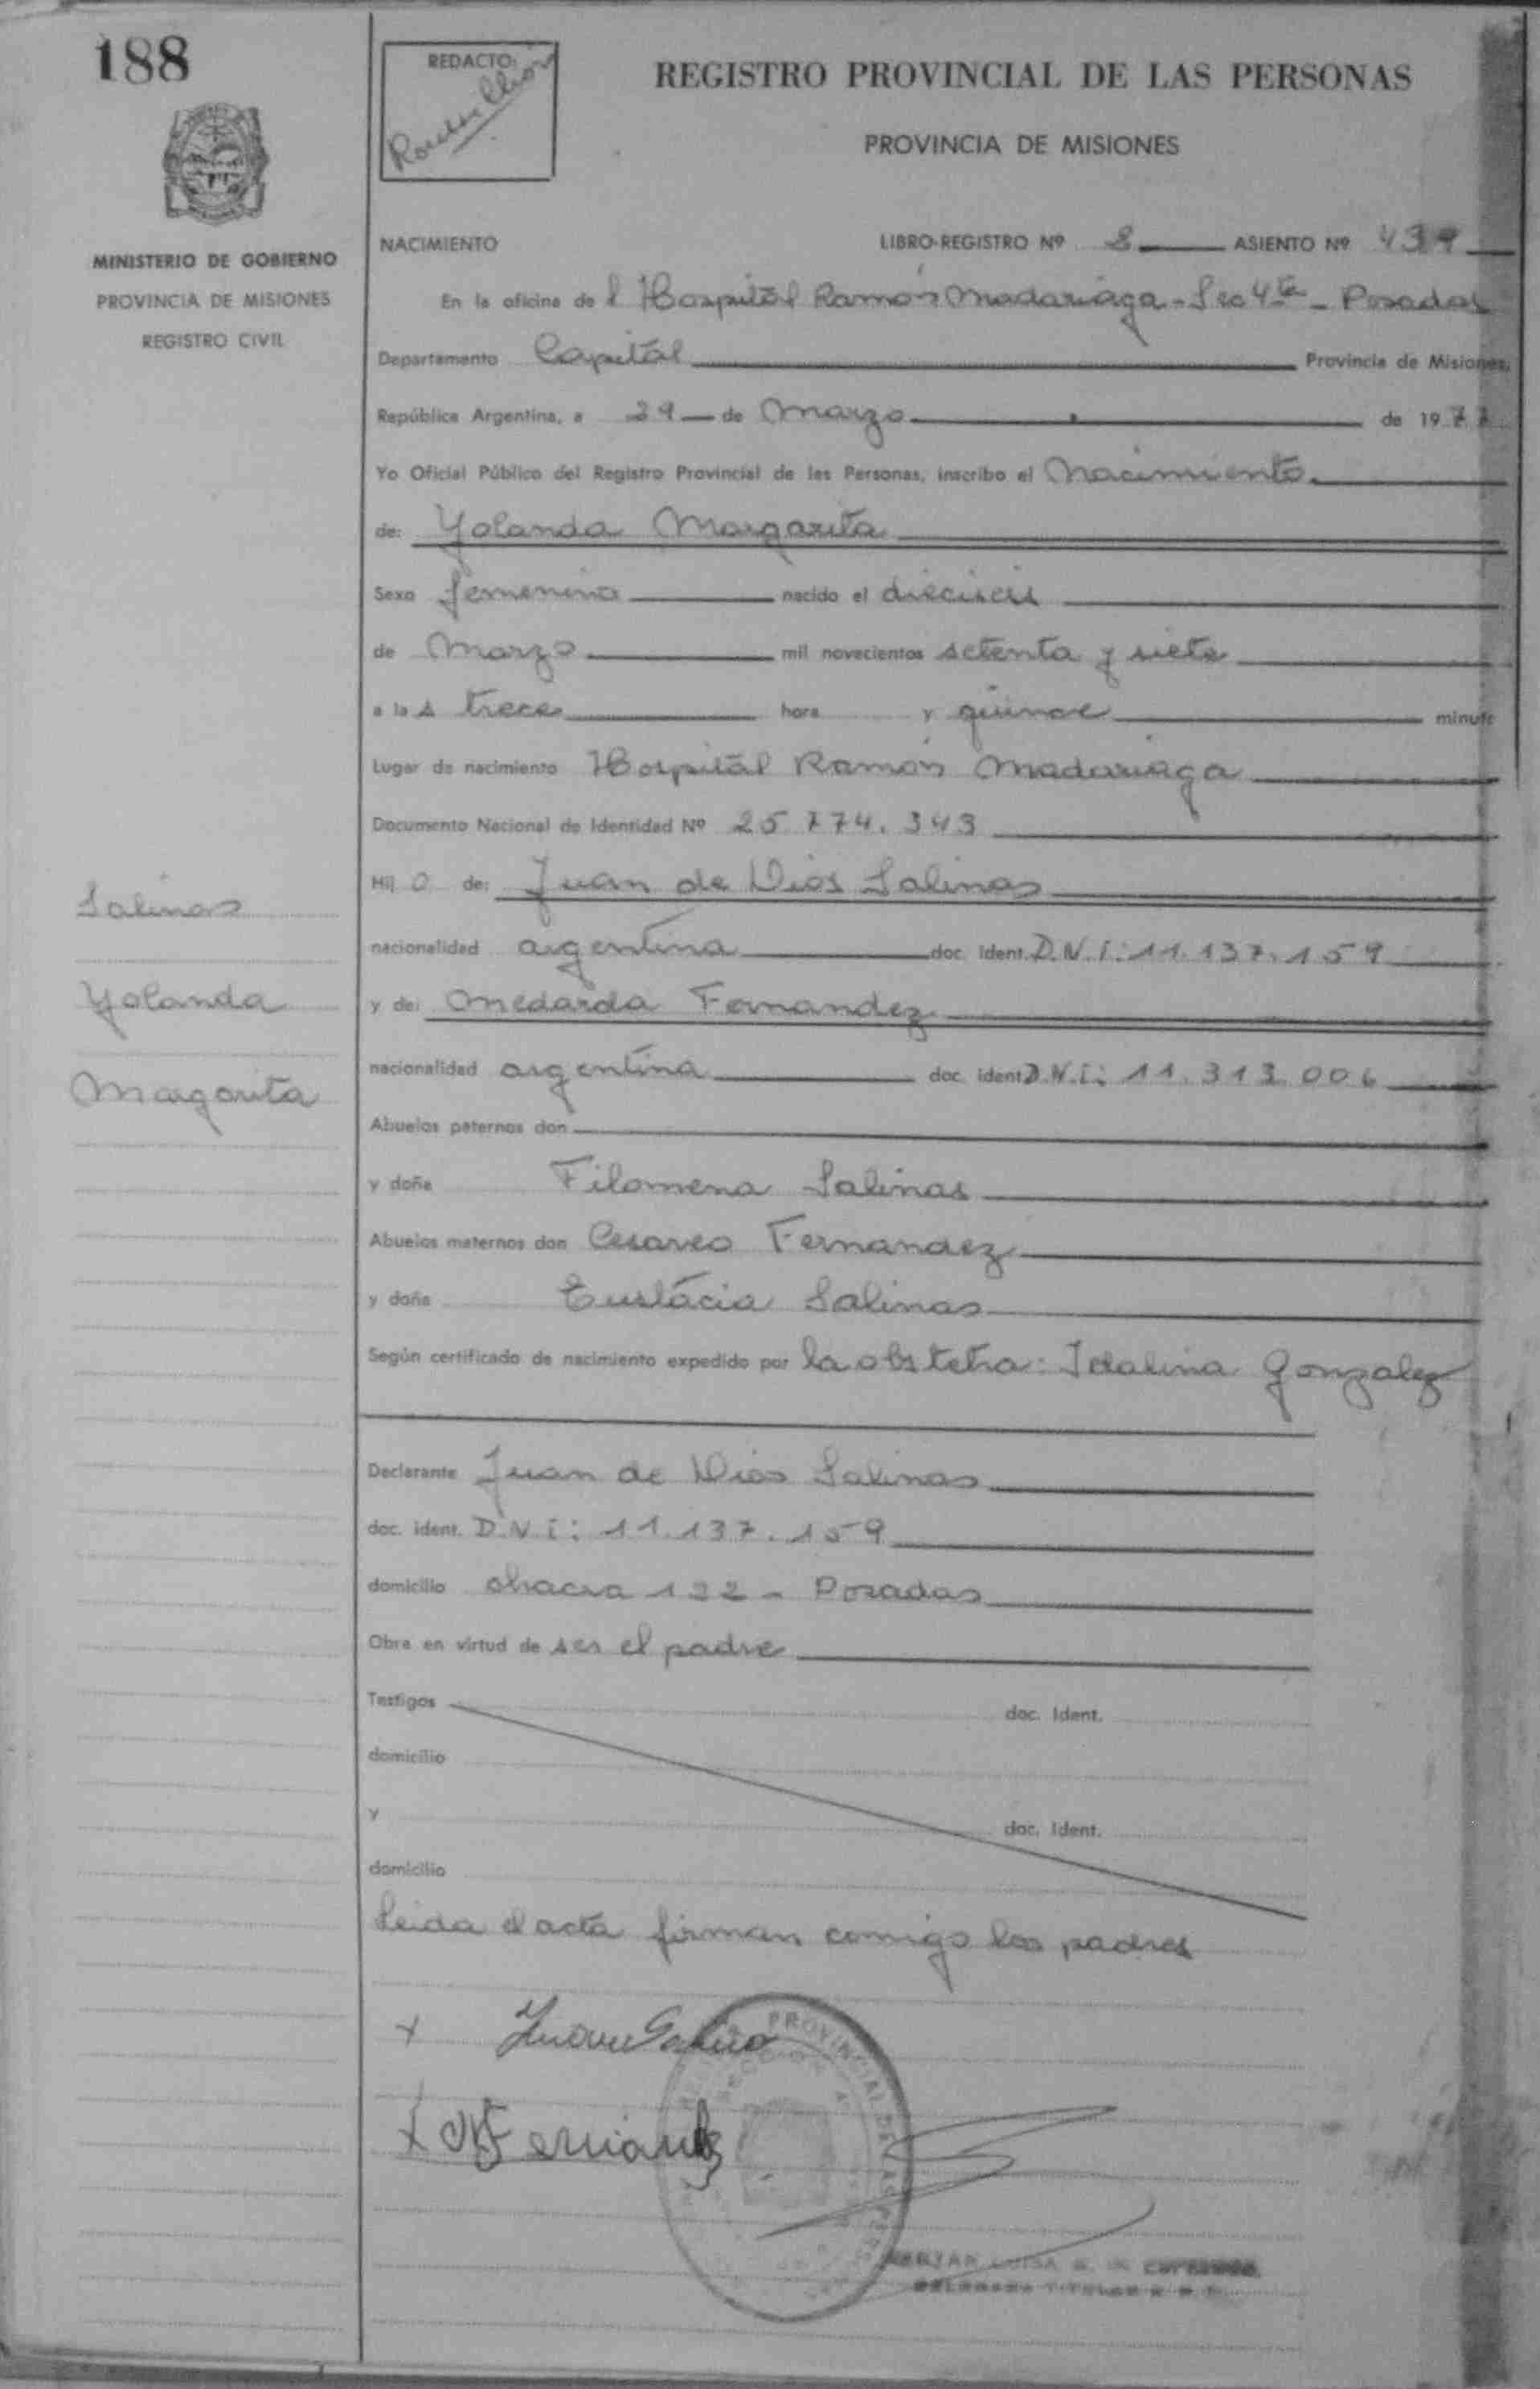 188
REDACTO:
REGISTRO PROVINCIAL DE LAS PERSONAS
PROVINCIA DE MISIONES
MINISTERIO DE GOBIERNO
PROVINCIA DE MISIONES
REGISTRO CIVIL
NACIMIENTO LIBRO-REGISTRO Nº 8 ASIENTO Nº 439
En la oficina de l Hospitál Ramón Madariaga - Sec 4ta - Posadas
Departamento Capitál Provincia de Misiones,
República Argentina, a 29 de Marzo de 1977
Yo Oficial Público del Registro Provincial de las Personas, inscribo el Nacimiento
de: Yolanda Margarita
Sexo femenino nacido el dieciseis
de Marzo mil novecientos setenta y siete
a la s trece hora y quince minuto
Lugar de nacimiento Hospitál Ramón Madariaga
Documento Nacional de Identidad Nº 25 774. 343
Hij o de: Juan de Dios Salinas
nacionalidad argentina doc. ident. D.N.I: 11. 137. 159
y de: Medarda Fernandez
nacionalidad argentina doc. ident D.N.I: 11. 313 006
Abuelos paternos don
y doña Filomena Salinas
Abuelos maternos don Cesareo Fernandez
y doña Eustácia Salinas
Según certificado de nacimiento expedido por la obstetra: Idalina Gonzalez
Declarante Juan de Dios Salinas
doc. ident. D.N.I: 11. 137. 159
domicilio chacra 122 - Posadas
Obra en virtud de ser el padre
Testigos doc. Ident.
domicilio
y doc. Ident.
domicilio
Leida el acta firman comigo los padres
Salinas
Yolanda
Margarita
X
X MFernandez
PROVINCIAL DE LAS
LUISA